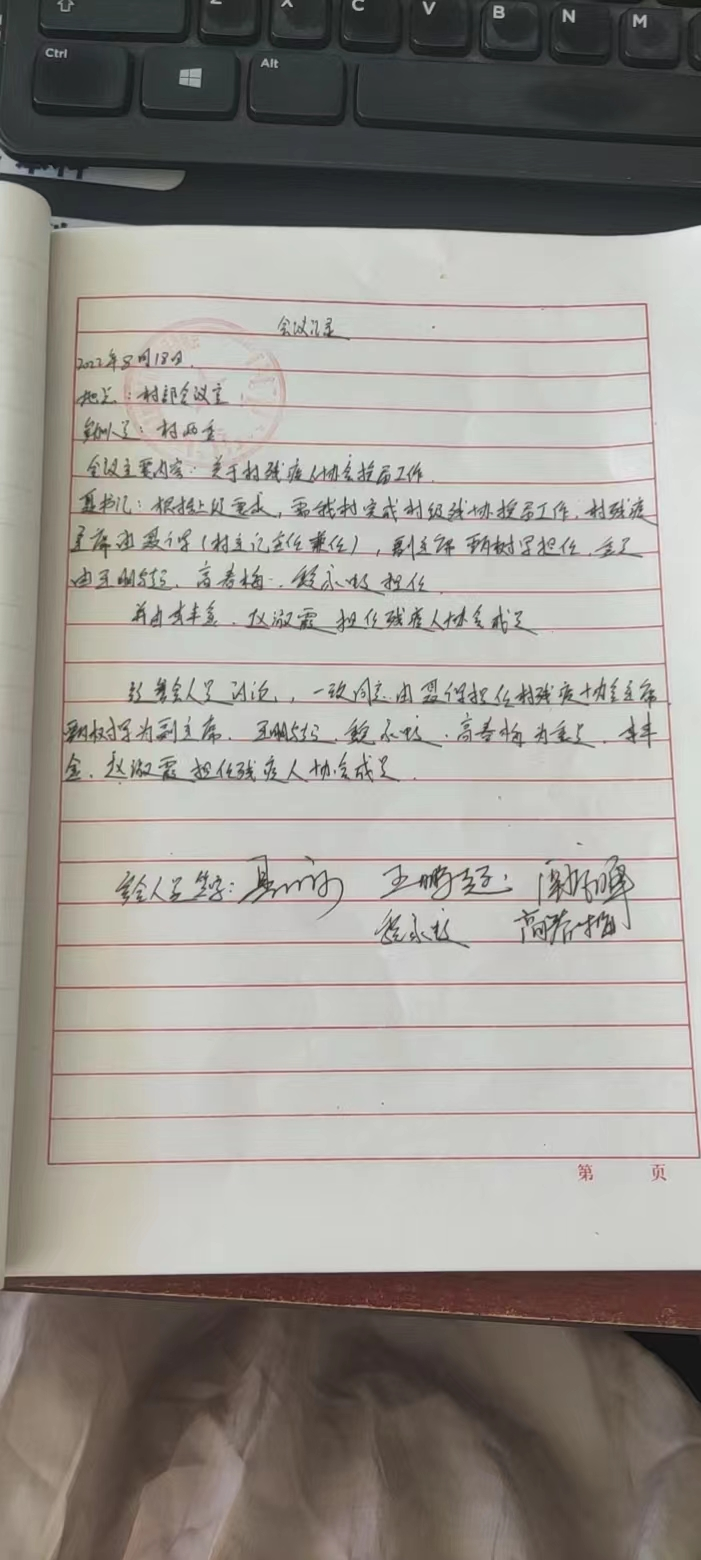 Z X C V B N M
Ctrl Alt
会议记录
2022年8月18日
地点：村部会议室
参加人员：村两委
会议主要内容：关于村残疾人协会换届工作
聂书记：根据上级要求，需我村完成村级残协换届工作，村残疾
主席由聂（村主记主任兼任），副主席树担任，委员
由王鹏超、高春梅、程永担任
并由李丰金、赵淑霞担任残疾人协会成员
经参会人员讨论，一致同意由聂担任村残疾人协会主席
树为副主席，王鹏超、程永、高春梅为委员，李丰
金、赵淑霞担任残疾人协会成员
参会人员签字：聂 王鹏超
程永 高春梅
第 页